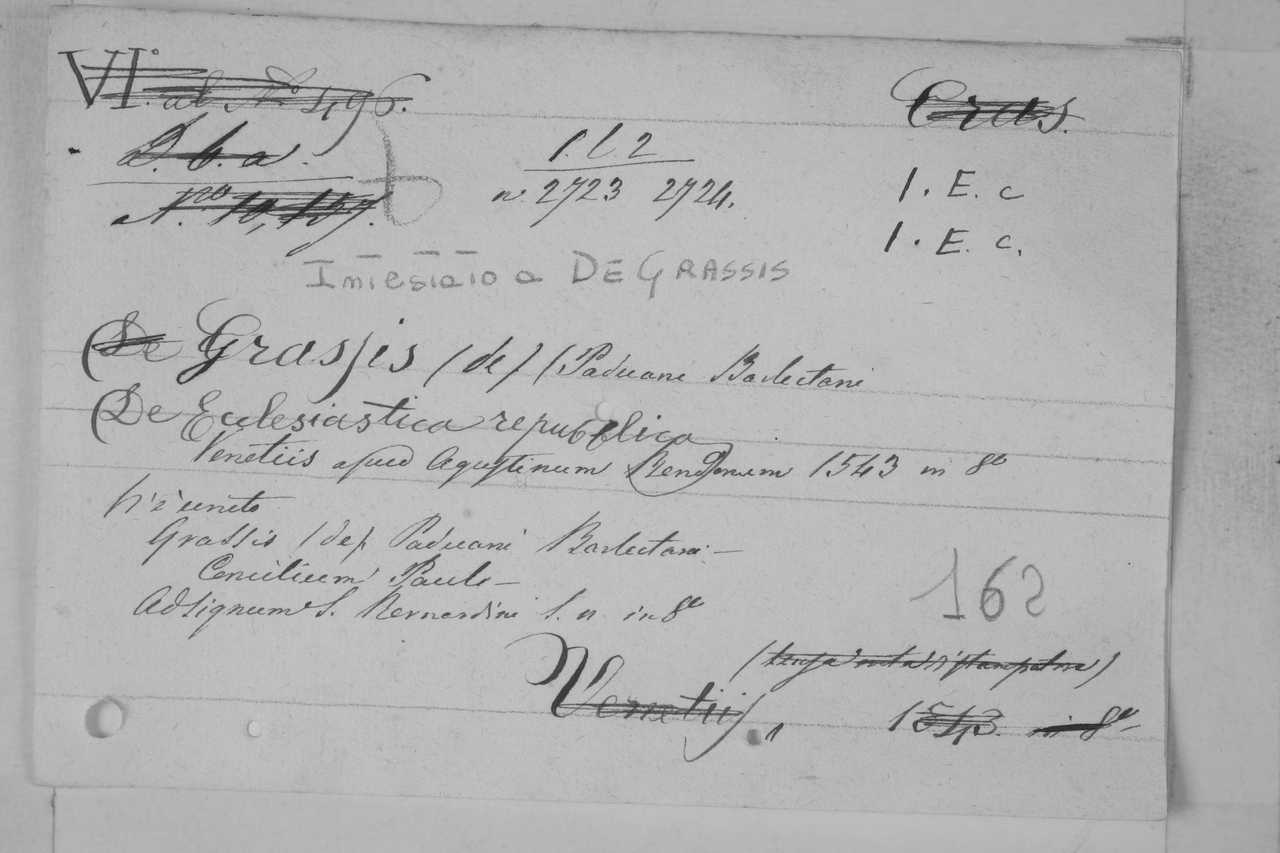 VI.° al N.° 496.
Gras.
D. b. a.
1. l. 2
N.ro 10,157.
n. 2723 2724.
1. E. c
1. E. c.
Intestato a DE GRASSIS
(De Grassis (de) (Paduani Barlectani
(De Ecclesiastica republica
Venetiis apud Agustinum Bendonum 1543 in 8°
V'è unito
Grassis (de) Paduani Barlectani –
Concilium Pauli –
Ad signum S. Bernardini S. n. in 8°
162
(senza nota di stampatore)
Venetiis, 1543. in 8°